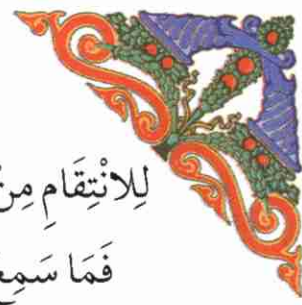 لِلِانْتِقَامِ مِنْ
فَمَا سَمِعَ